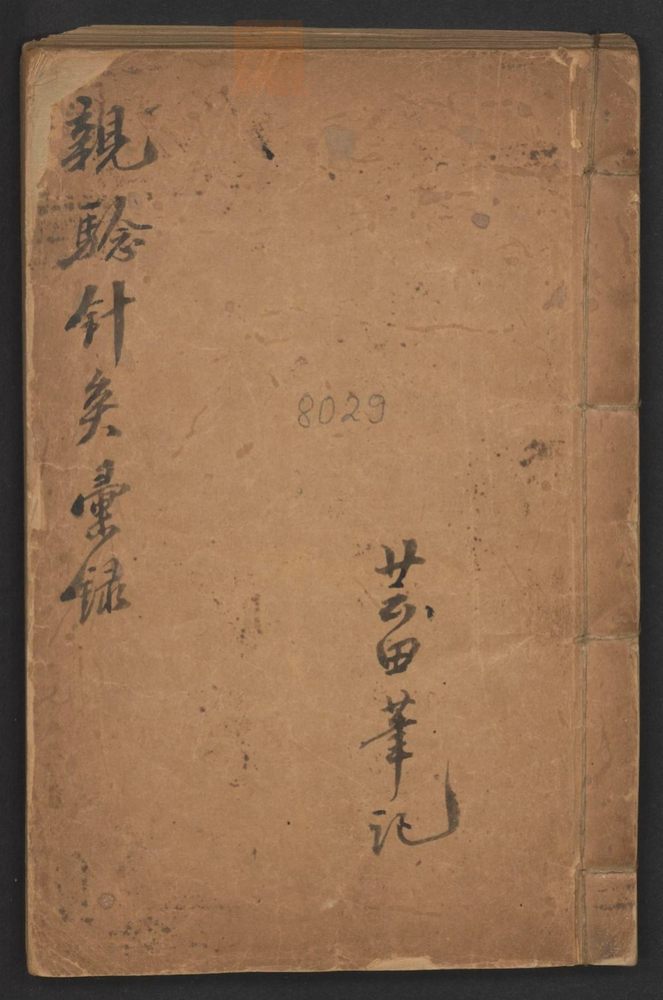 親驗针灸彙録
8029
芸田筆記